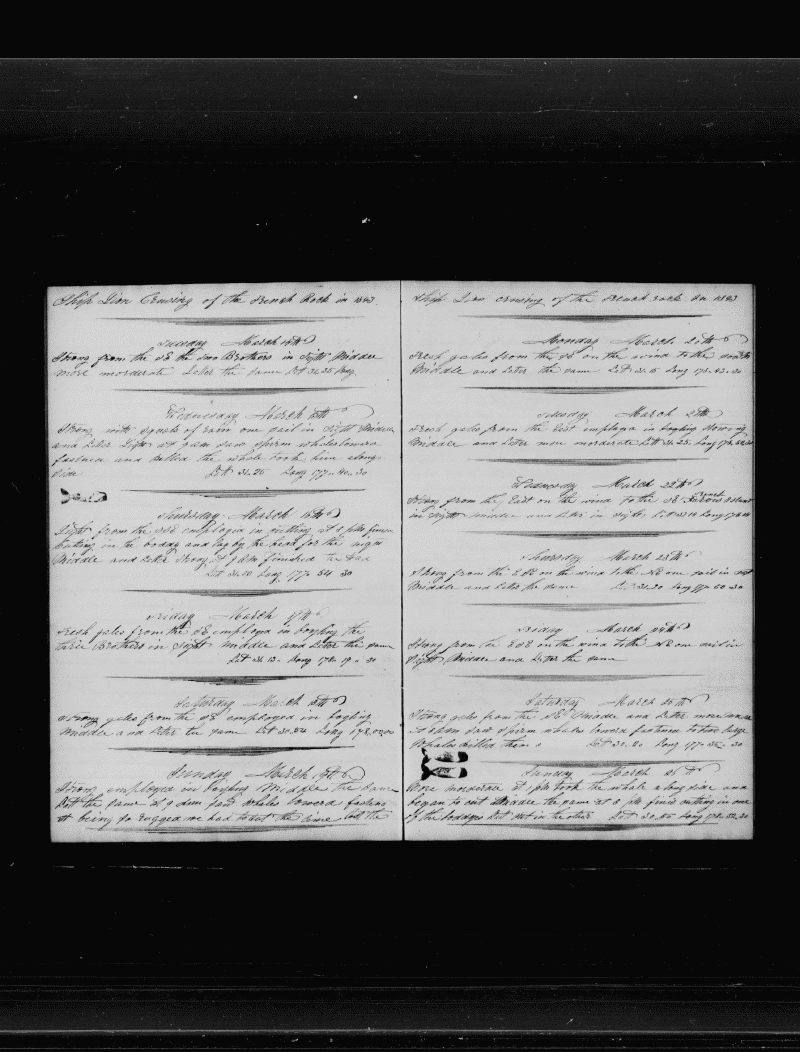 Ship Lion Cruising of the French Rock in 1843
Tuesday March 14th
Strong from the SE the two Brothers in sight Middle
more morderate Later the same Lat 31.35 Long
Wednesday March 15th
Strong with squals of rain one sail in sight Middle
and Later Light at 9 am saw sperm whales lowerd
fastned and killed the whale took him along
side Lat 31.35 Long 177..40..30
Thursday March 16th
Light from the employed in cutting at 2 pm finnis
cutting in the boddy and lay by the head for the night
Middle and Later Strong at 9 am finished the head
Lat 31.20 Long 177.. 54 30
Friday March 17th
Fresh gales from the SE employed in boyling the
three Brothers in sight Middle and Later the same
Lat 31.13.. Long 178..19..30
Saturday March 18th
Strong gales from the SE employed in boyling
Middle and Later the same Lat 30.54 Long 178.02.00
Sunday March 19th
Strong employed in boyling Middle the same
Lat the same at 9 am saw whales lowerd fastned
it being so rugged we had to cut the line lost the
Ship Lion cruising of the French rock in 1843
Monday March 20th
Fresh gales from the SE on the wind to the south
Middle and Later the same Lat 31.5 Long 178.43.30
Tuesday March 21th
Fresh gales from the East employed in boyling Stowing
Middle and Later more morderate Lat 31.25 Long 178.
Wednesday March 22th
Strong from the East on the wind to the SE
in sight Middle and Later in sight Lat 31.14 Long 178.
Thursday March 23th
Strong from the ESE on the wind to the NE one sail in sight
Middle and Later the same Lat 31.20 Long 177..50..30
Friday March 24th
Strong from the ESE on the wind to the NE one sail in
Sight Middle and Later the same
Saturday March 25th
Strong gales from the SE Middle and Later more
at saw sperm whales lowerd fastned to two large
Whales killed them Lat 31.20 Long 177 35.. 30
Sunday March 26th
More morderate at 1 pm took the whale along side and
began to cut Middle the same at 8 pm finis cutting in one
of the boddyes Later cut in the other Lat 30.55 Long 178..22..30